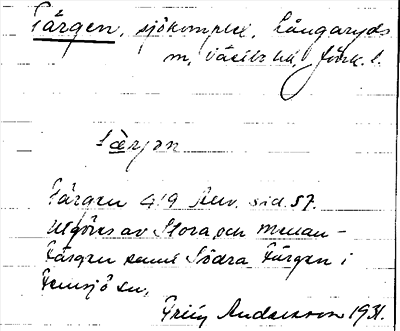 Färgen, sjökomplex, Långaryds
m, Västbo hd, Jönk. l.
Färjen
Färgen 419 Anv. sid. 57.
utgöres av Stora och Mellan-
Färgen samt Södra Färgen i
Femsjö sn.
Andersson 1931.